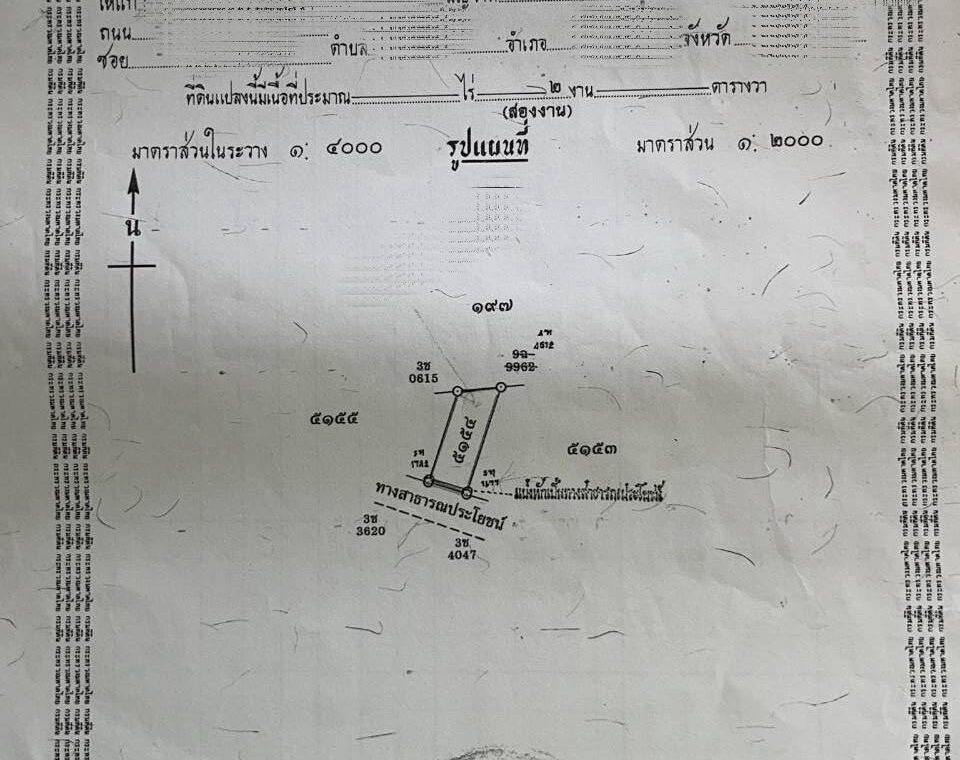 ถนน
ตำบล
อำเภอ
จังหวัด
ซอย
ที่ดินแปลงนี้มีเนื้อที่ประมาณ ไร่ ๒ งาน ตารางวา
(สองงาน)
มาตราส่วนในระวาง ๑: ๔๐๐๐
รูปแผนที่
มาตราส่วน ๑: ๒๐๐๐
น
๑๙๗
9ฉ
9962
3ช
0615
๕๑๕๕
๕๑๕๔
๕๑๕๓
ทางสาธารณประโยชน์
3ช
3620
3ช
4047
กรมที่ดิน กระทรวงมหาดไทย